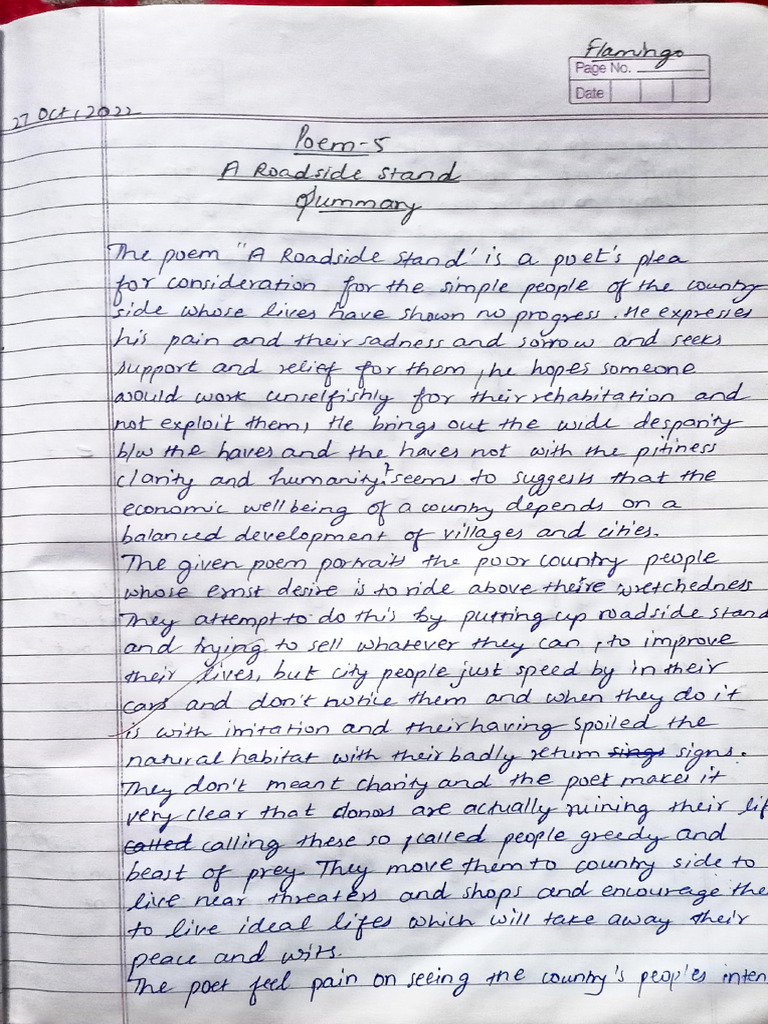 Flamingo
Page No.
Date
27 Oct, 2022
Poem-5
A Roadside Stand
Summary
The poem "A Roadside Stand' is a poet's plea
for consideration for the simple people of the country
side whose lives have shown no progress. He expresses
his pain and their sadness and sorrow and seeks
support and relief for them, he hopes someone
would work unselfishly for their rehabitation and
not exploit them, He brings out the wide desparity
b/w the haves and the haves not with the pitiness
clarity and humanity. seems to suggests that the
economic well being of a country depends on a
balanced development of villages and cities.
The given poem portraits the poor country people
whose ernst desire is to ride above theire wretchedness
They attempt to do this by putting up roadside stand
and trying to sell whatever they can, to improve
their lives, but city people just speed by in their
cars and don't notice them and when they do it
is with irritation and their having spoiled the
natural habitat with their badly return sings signs.
They don't meant charity and the poet makes it
very clear that donors are actually ruining their lif
called calling these so called people greedy and
beast of prey. They move them to country side to
live near threaters and shops and encourage the
to live ideal lifes which will take away their
peace and wits.
The poet feel pain on seeing the country's people's inten